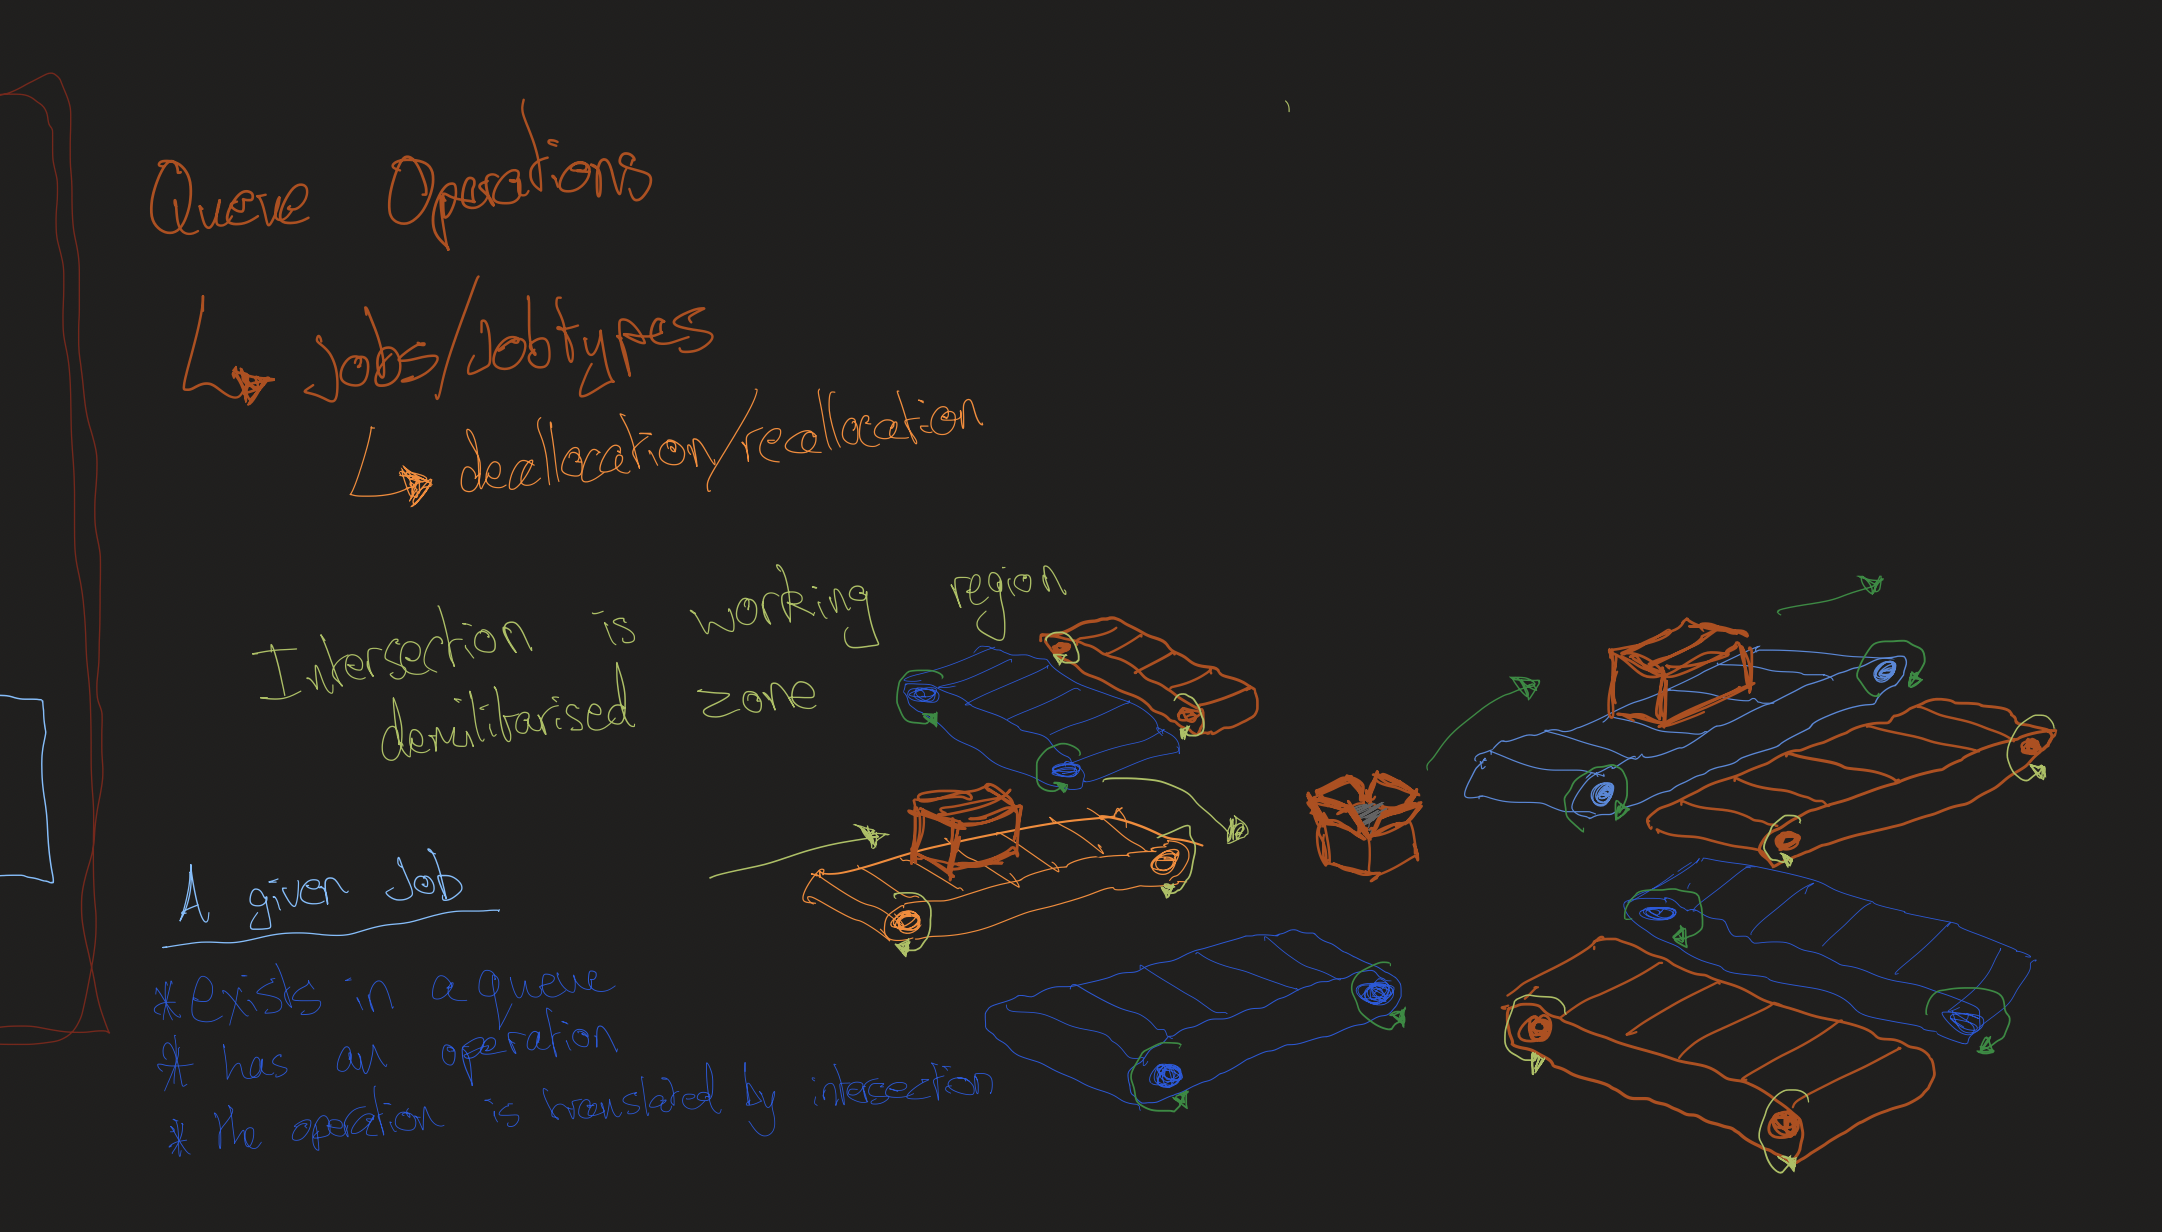 Queue Operations
Jobs/Jobtypes
deallocation/reallocation
Intersection is working region
demilitarised zone
A given Job
* exists in a queue
* has an operation
* the operation is translated by intersection